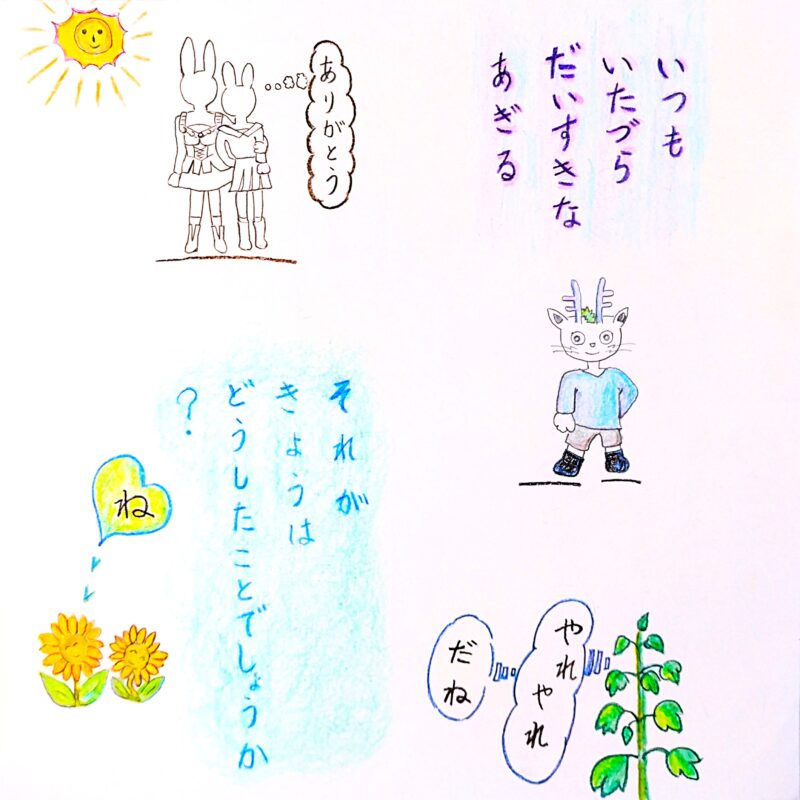 いつも
いたづら
だいすきな
あぎる
ありがとう
やれやれ
だね
それが
きょうは
どうしたことでしょうか
?
ね